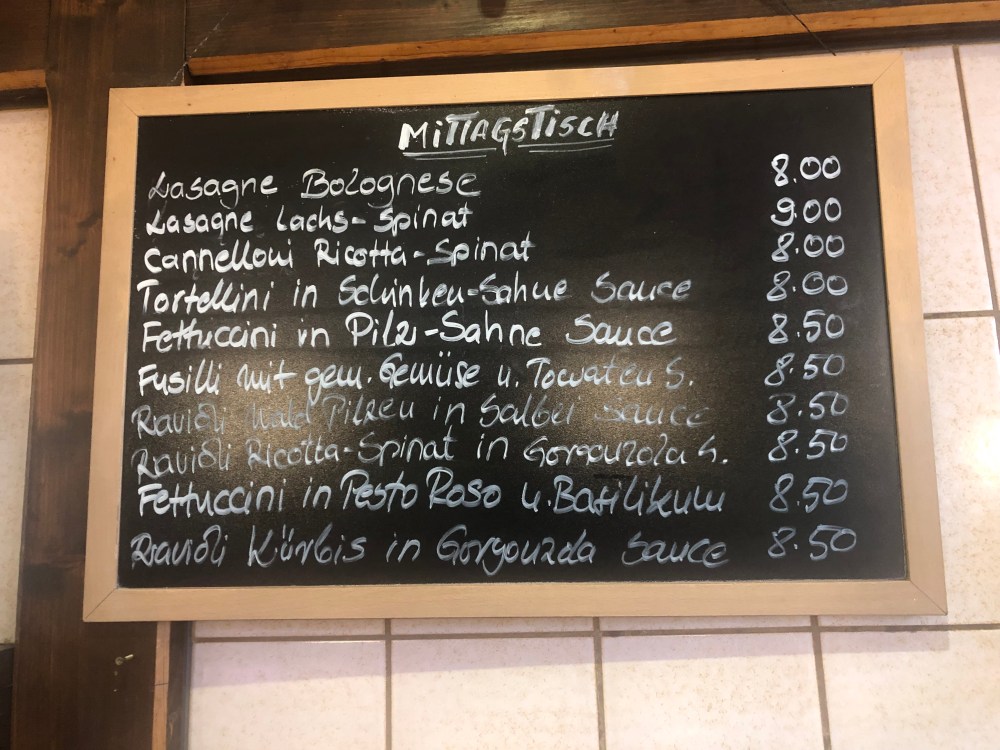 MITTAGSTISCH
Lasagne Bolognese 8.00
Lasagne Lachs-Spinat 9.00
Cannelloni Ricotta-Spinat 8.00
Tortellini in Schinken-Sahne Sauce 8.00
Fettuccini in Pilz-Sahne Sauce 8.50
Fusilli mit gem. Gemüse u. Tomaten S. 8.50
Ravioli Wald Pilzen in Salbei Sauce 8.50
Ravioli Ricotta-Spinat in Gorgonzola S. 8.50
Fettuccini in Pesto Roso u. Basilikum 8.50
Ravioli Kürbis in Gorgonzola Sauce 8.50